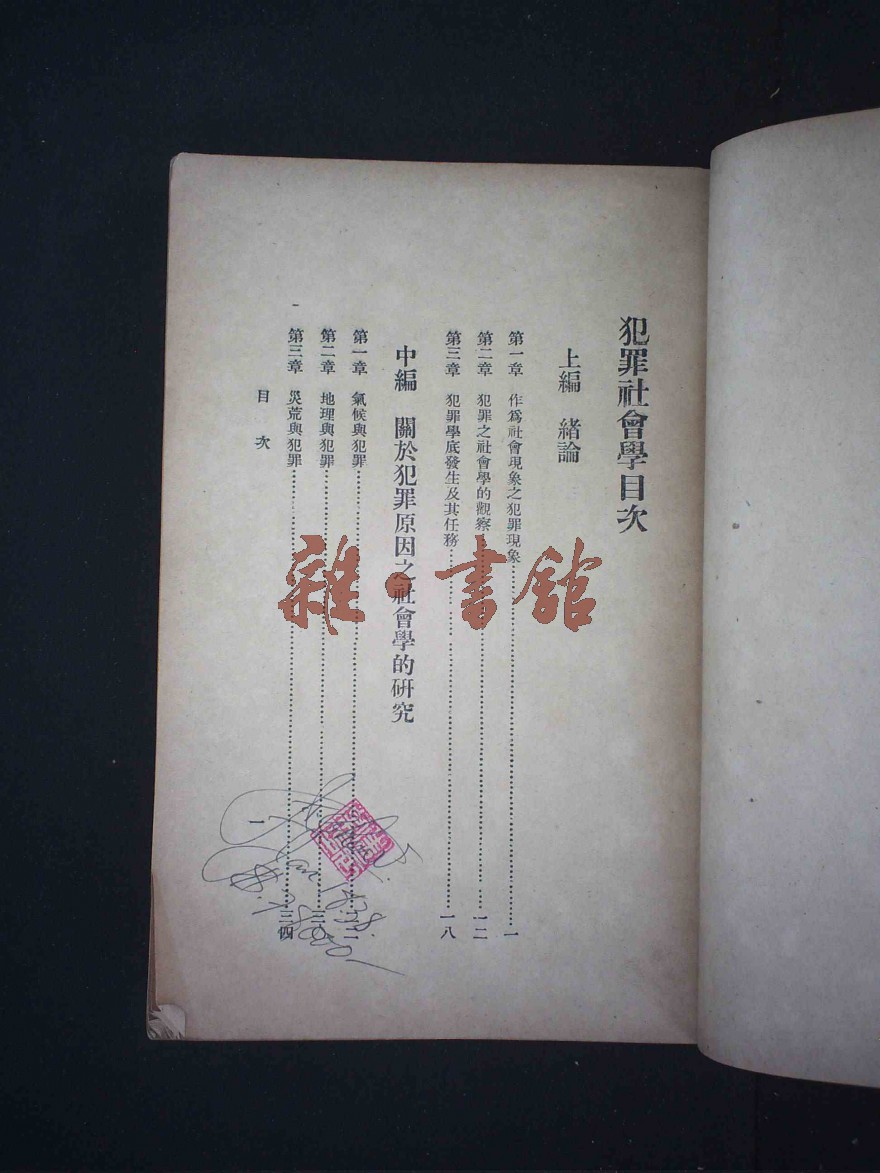 犯罪社會學目次
上編　緒論
第一章　作爲社會現象之犯罪現象……一
第二章　犯罪之社會學的觀察……一二
第三章　犯罪學底發生及其任務……一八
中編　關於犯罪原因之社會學的研究
第一章　氣候與犯罪……二二
第二章　地理與犯罪……三〇
第三章　災荒與犯罪……三四
目次
一
雜·書館